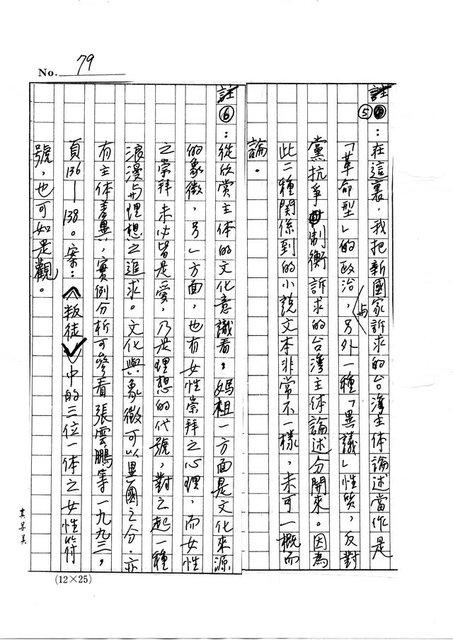 No. 79
註⑤：在這裏，我把新國家訴求的台灣主体論述當作是
「革命型」的政治，與另外一種「異議」性質，反對
黨抗爭制衡訴求的台灣主体論述分開來。因為
此二種關係到的小說文本非常不一樣，未可一概而
論。
註⑥：從欣賞主体的文化意識看，媽祖一方面是文化來源
的象徵，另一方面，也有女性崇拜之心理，而女性
之崇拜未必皆是愛，乃是理想的代號，對之起一種
浪漫与理想之追求。文化與象徵可以異國之分，亦
有主体差異，實例分析可參看張雲鵬等一九九三，
頁136—138。案：《叛徒》中的三位一体之女性符
號，也可如是觀。
(12×25)